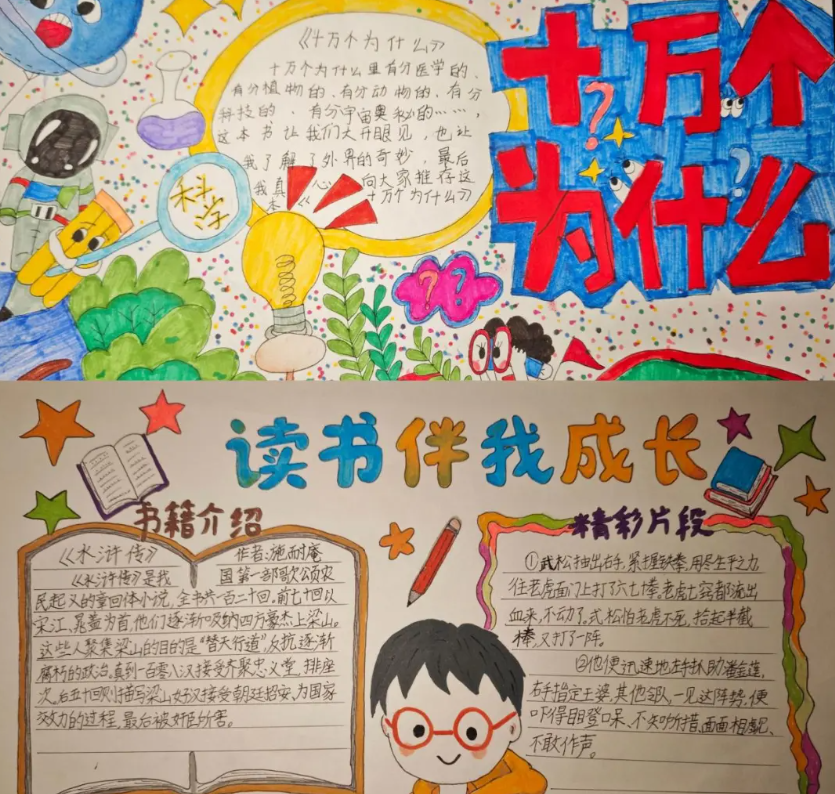 《十万个为什么》
十万个为什么里有分医学的、
有分植物的、有分动物的、有分
科技的、有分宇宙奥秘的……,
这本书让我们大开眼见,也让
我了解了外界的奇妙,最后
我真 心 向大家推荐这
本《 十万个为什么》
科学
十万个
为什么
读书伴我成长
书籍介绍
《水浒传》 作者:施耐庵
《水浒传》是我 国第一部歌颂农
民起义的章回体小说,全书共一百二十回,前七十回以
宋江,晁盖为首,他们逐渐吸纳四方豪杰上梁山。
这些人聚集梁山的目的是“替天行道”反抗逐渐
腐朽的政治,直到一百零八汉接受齐聚忠义堂,排座
次,后五十回则描写梁山好汉接受朝廷招安,为国家
效力的过程,最后被奸臣所害。
精彩片段
①武松抽出右手,紧握铁拳,用尽生平之力
往老虎面门上打了六七捶,老虎七窍都流出
血来,不动了。武松怕老虎不死,拾起半截
棒,又打了一阵。
②他便迅速地左手扒助潘金莲,
右手指定王婆,其他邻人,一见这阵势,便
吓得目瞪口呆、不知所措,面面相觑、
不敢作声。